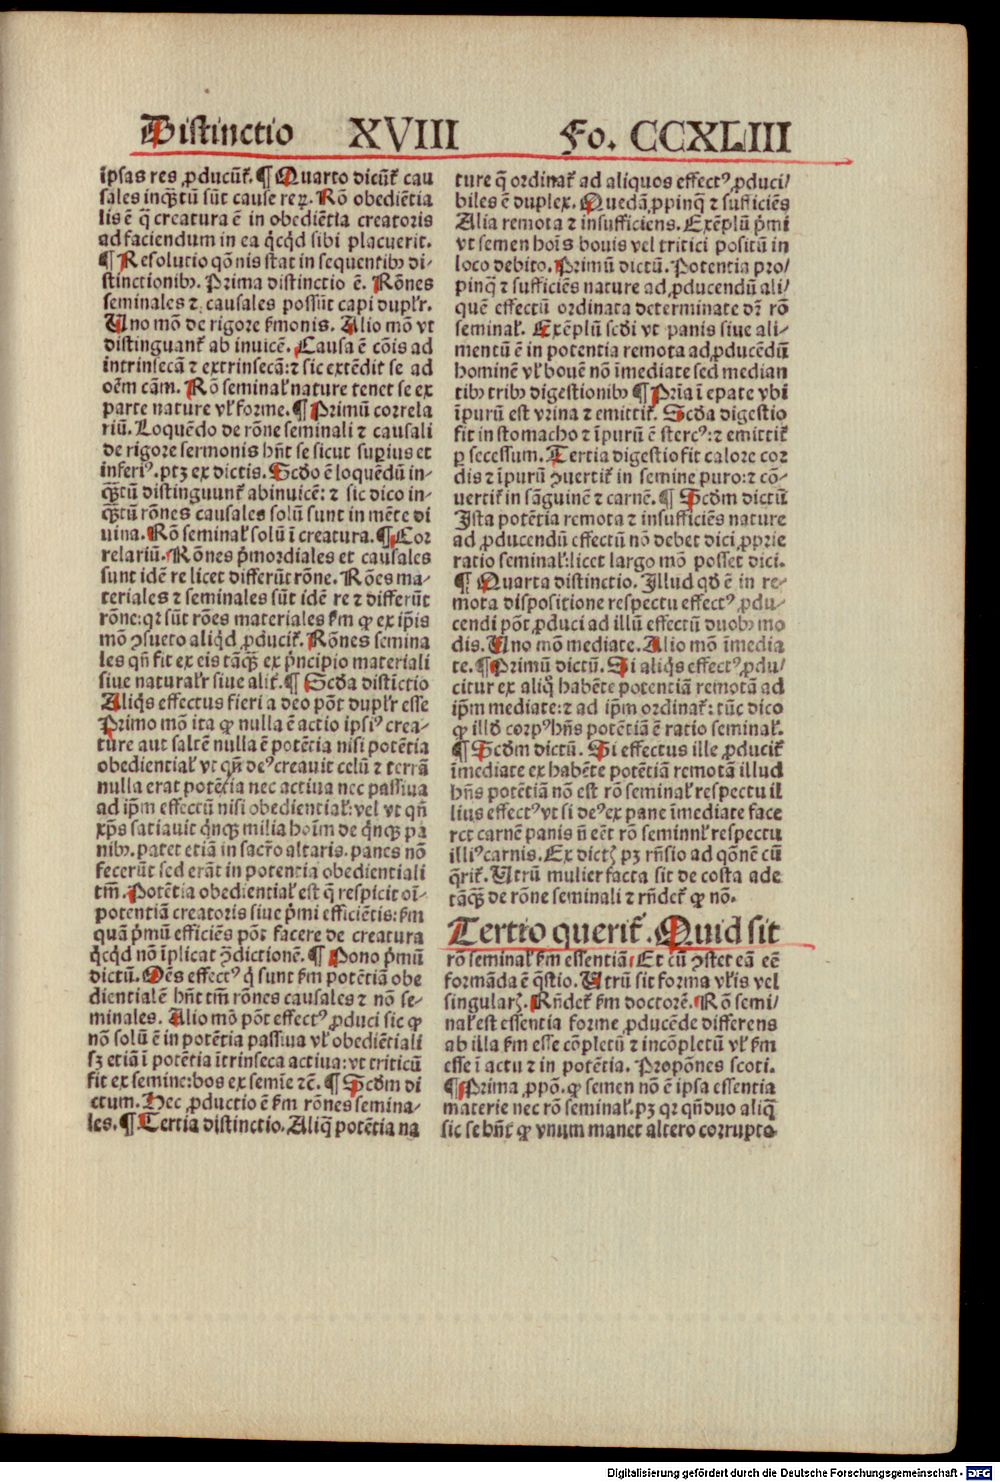 Distinctio XVIII Fo. CCXLIII
ip̄sas res ꝓducūt᷑. ¶ Quarto dicūt᷑ cau
sales inq̄ꝫtū sūt cause reꝝ. Rō obediētia
lis ē q̄ creatura ē in obediētia creatoris
ad faciendum in ea q̇cq̇d sibi placuerit.
¶ Resolutio qōnis stat in sequentibꝰ di⸗
stinctionibꝰ. Prima distinctio ē. Rōnes
seminales ⁊ causales possūt capi duplr̄.
Uno mō de rigore ẜmonis. Alio mō vt
distinguant᷑ ab invicē. Causa ē cōis ad
intrinsecā ⁊ extrinsecā: ⁊ sic extēdit se ad
oēm cām. Rō seminal̕ nature tenet se ex
parte nature vl̕ forme. ¶ Primū correla
riū. Loquēdo de rōne seminali ⁊ causali
de rigore sermonis hn̄t se sicut suꝑius et
inferiꝰ. ptꝫ ex dictis. Scd̄o ē loquēdū in⸗
q̄ꝫtū distinguunt᷑ abinuicē: ⁊ sic dico in⸗
q̄ꝫtū rōnes causales solū sunt in mēte di
uina. Rō seminal̕ solū ī creatura. ¶ Cor
relariū. Rōnes p̄mordiales et causales
sunt idē re licet differūt rōne. Rōes ma⸗
teriales ⁊ seminales sūt idē re ⁊ differūt
rōne: qr sūt rōes materiales ẜm ꝙ ex ip̄is
mō ꝯsueto aliqd̄ ꝓducit᷑. Rōnes semina
les qn̄ fit ex eis tāq̄ꝫ ex p̄ncipio materiali
siue natural̕r siue alit᷑. ¶ Scd̄a distīctio
Aliq̇s effectus fieri a deo pōt duplr̄ esse
Primo mō ita ꝙ nulla ē actio ipsiꝰ crea⸗
ture aut saltē nulla ē potētia nisi potētia
obediential̕ vt qn̄ deꝰ creauit celū ⁊ terrā
nulla erat potētia nec actiua nec passiua
ad ip̄m effectū nisi obediential̕: vel vt qn̄
xp̄s satiauit q̇nqꝫ milia hoīm de q̇nqꝫ pa
nibꝰ. patet etiā in sacr̄o altaris. panes nō
fecerūt sed erāt in potentia obedientiali
tm̄. Potētia obediential̕ est q̄ respicit oī⸗
potentiā creatoris siue p̄mi efficiētis: ẜm
quā p̄mū efficiēs pōt facere de creatura
q̇cq̇d nō īplicat ꝯdictionē. ¶ Pono p̄mū
dictū. Oēs effectꝰ q̇ sunt ẜm potētiā obe
dientialē hn̄t tm̄ rōnes causales ⁊ nō se⸗
minales. Alio mō pōt effectꝰ ꝓduci sic ꝙ
nō solū ē in potētia passiua vl̕ obediētiali
sꝫ etiā ī potētia ītrinseca actiua: vt triticū
fit ex semine: bos ex semīe ⁊c̄. ¶ Scd̄m di
ctum. Hec ꝓductio ē ẜm rōnes semina⸗
les. ¶ Tertia distinctio. Aliq̄ potētia na
ture q̄ ordinat᷑ ad aliquos effectꝰ ꝓduci⸗
biles ē duplex. Quedā ꝓpinq̄ ⁊ sufficiēs
Alia remota ⁊ insufficiens. Exēplū p̄mi
vt semen hoīs bouis vel tritici positū in
loco debito. Primū dictū. Potentia pro⸗
pinq̄ ⁊ sufficiēs nature ad ꝓducendū ali⸗
quē effectū ordinata determinate dr̄ rō
seminal̕. Exēplū scd̄i vt panis siue ali⸗
mentū ē in potentia remota ad ꝓducēdū
hominē vl̕ bouē nō īmediate sed median
tibꝰ tribꝰ digestionibꝰ ¶ Pria ī epate vbi
īpurū est vrina ⁊ emittit᷑. Scd̄a digestio
fit in stomacho ⁊ īpurū ē stercꝰ: ⁊ emittit᷑
ꝑ secessum. Tertia digestio fit calore cor
dis ⁊ īpurū ꝯuertit᷑ in semine puro: ⁊ cō⸗
uertit᷑ in sāguinē ⁊ carnē. ¶ Scd̄m dictū
Ista potētia remota ⁊ insufficiēs nature
ad ꝓducendū effectū nō debet dici ꝓprie
ratio seminal̕: licet largo mō posset dici.
¶ Quarta distinctio. Illud qd̄ ē in re⸗
mota dispositione respectu effectꝰ ꝓdu⸗
cendi pōt ꝓduci ad illū effectū duobꝰ mo
dis. Uno mō mediate. Alio mō īmedia
te. ¶ Primū dictū. Si aliq̇s effectꝰ ꝓdu⸗
citur ex aliq̄ habēte potentiā remotā ad
ip̄m mediate: ⁊ ad ip̄m ordinat᷑: tūc dico
ꝙ illd̄ corpꝰ hn̄s potētiā ē ratio seminal̕.
¶ Scd̄m dictū. Si effectus ille ꝓducit᷑
īmediate ex habēte potētiā remotā illud
hn̄s potētiā nō est rō seminal̕ respectu il
lius effectꝰ vt si deꝰ ex pane īmediate face
ret carnē panis n̄ eēt rō seminnl̕ respectu
illiꝰ carnis. Ex dictꝭ pꝫ rn̄sio ad qōnē cū
q̄rit᷑. Utrū mulier facta sit de costa ade
tāq̄ꝫ de rōne seminali ⁊ rn̄det᷑ ꝙ nō.
Tertio querit᷑. Quid sit
rō seminal̕ ẜm essentiā. Et cū ꝯstet eā eē
formāda ē q̄stio. Utrū sit forma vl̕is vel
singularꝭ. Rn̄det᷑ ẜm doctorē. Rō semi⸗
nal̕ est essentia forme ꝓducēde differens
ab illa ẜm esse cōpletū ⁊ incōpletū vl̕ ẜm
esse ī actu ⁊ in potētia. Propōnes scoti.
¶ Prima ꝓpō. ꝙ semen nō ē ipsa essentia
materie nec rō seminal̕. pꝫ qr qn̄ duo aliq̄
sic se hn̄t ꝙ vnum manet altero corrupto
Digitalisierung gefördert durch die Deutsche Forschungsgemeinschaft - DFG